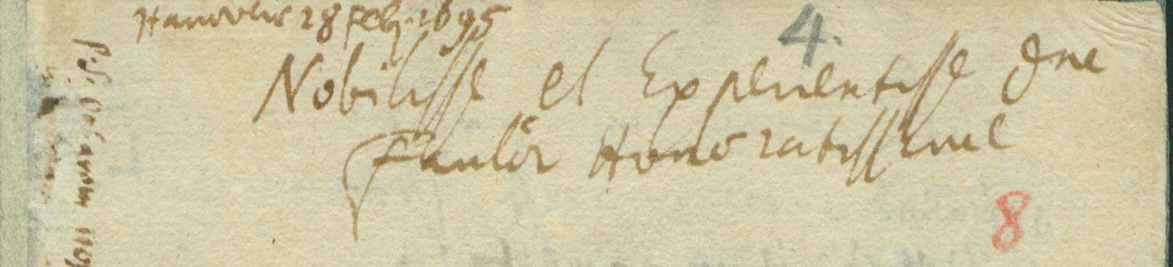 Hanoverae 28 Feb. 1695
4.
Nobilisse et Experientisse Dne
Fautor Honoratissime
8
P.S.